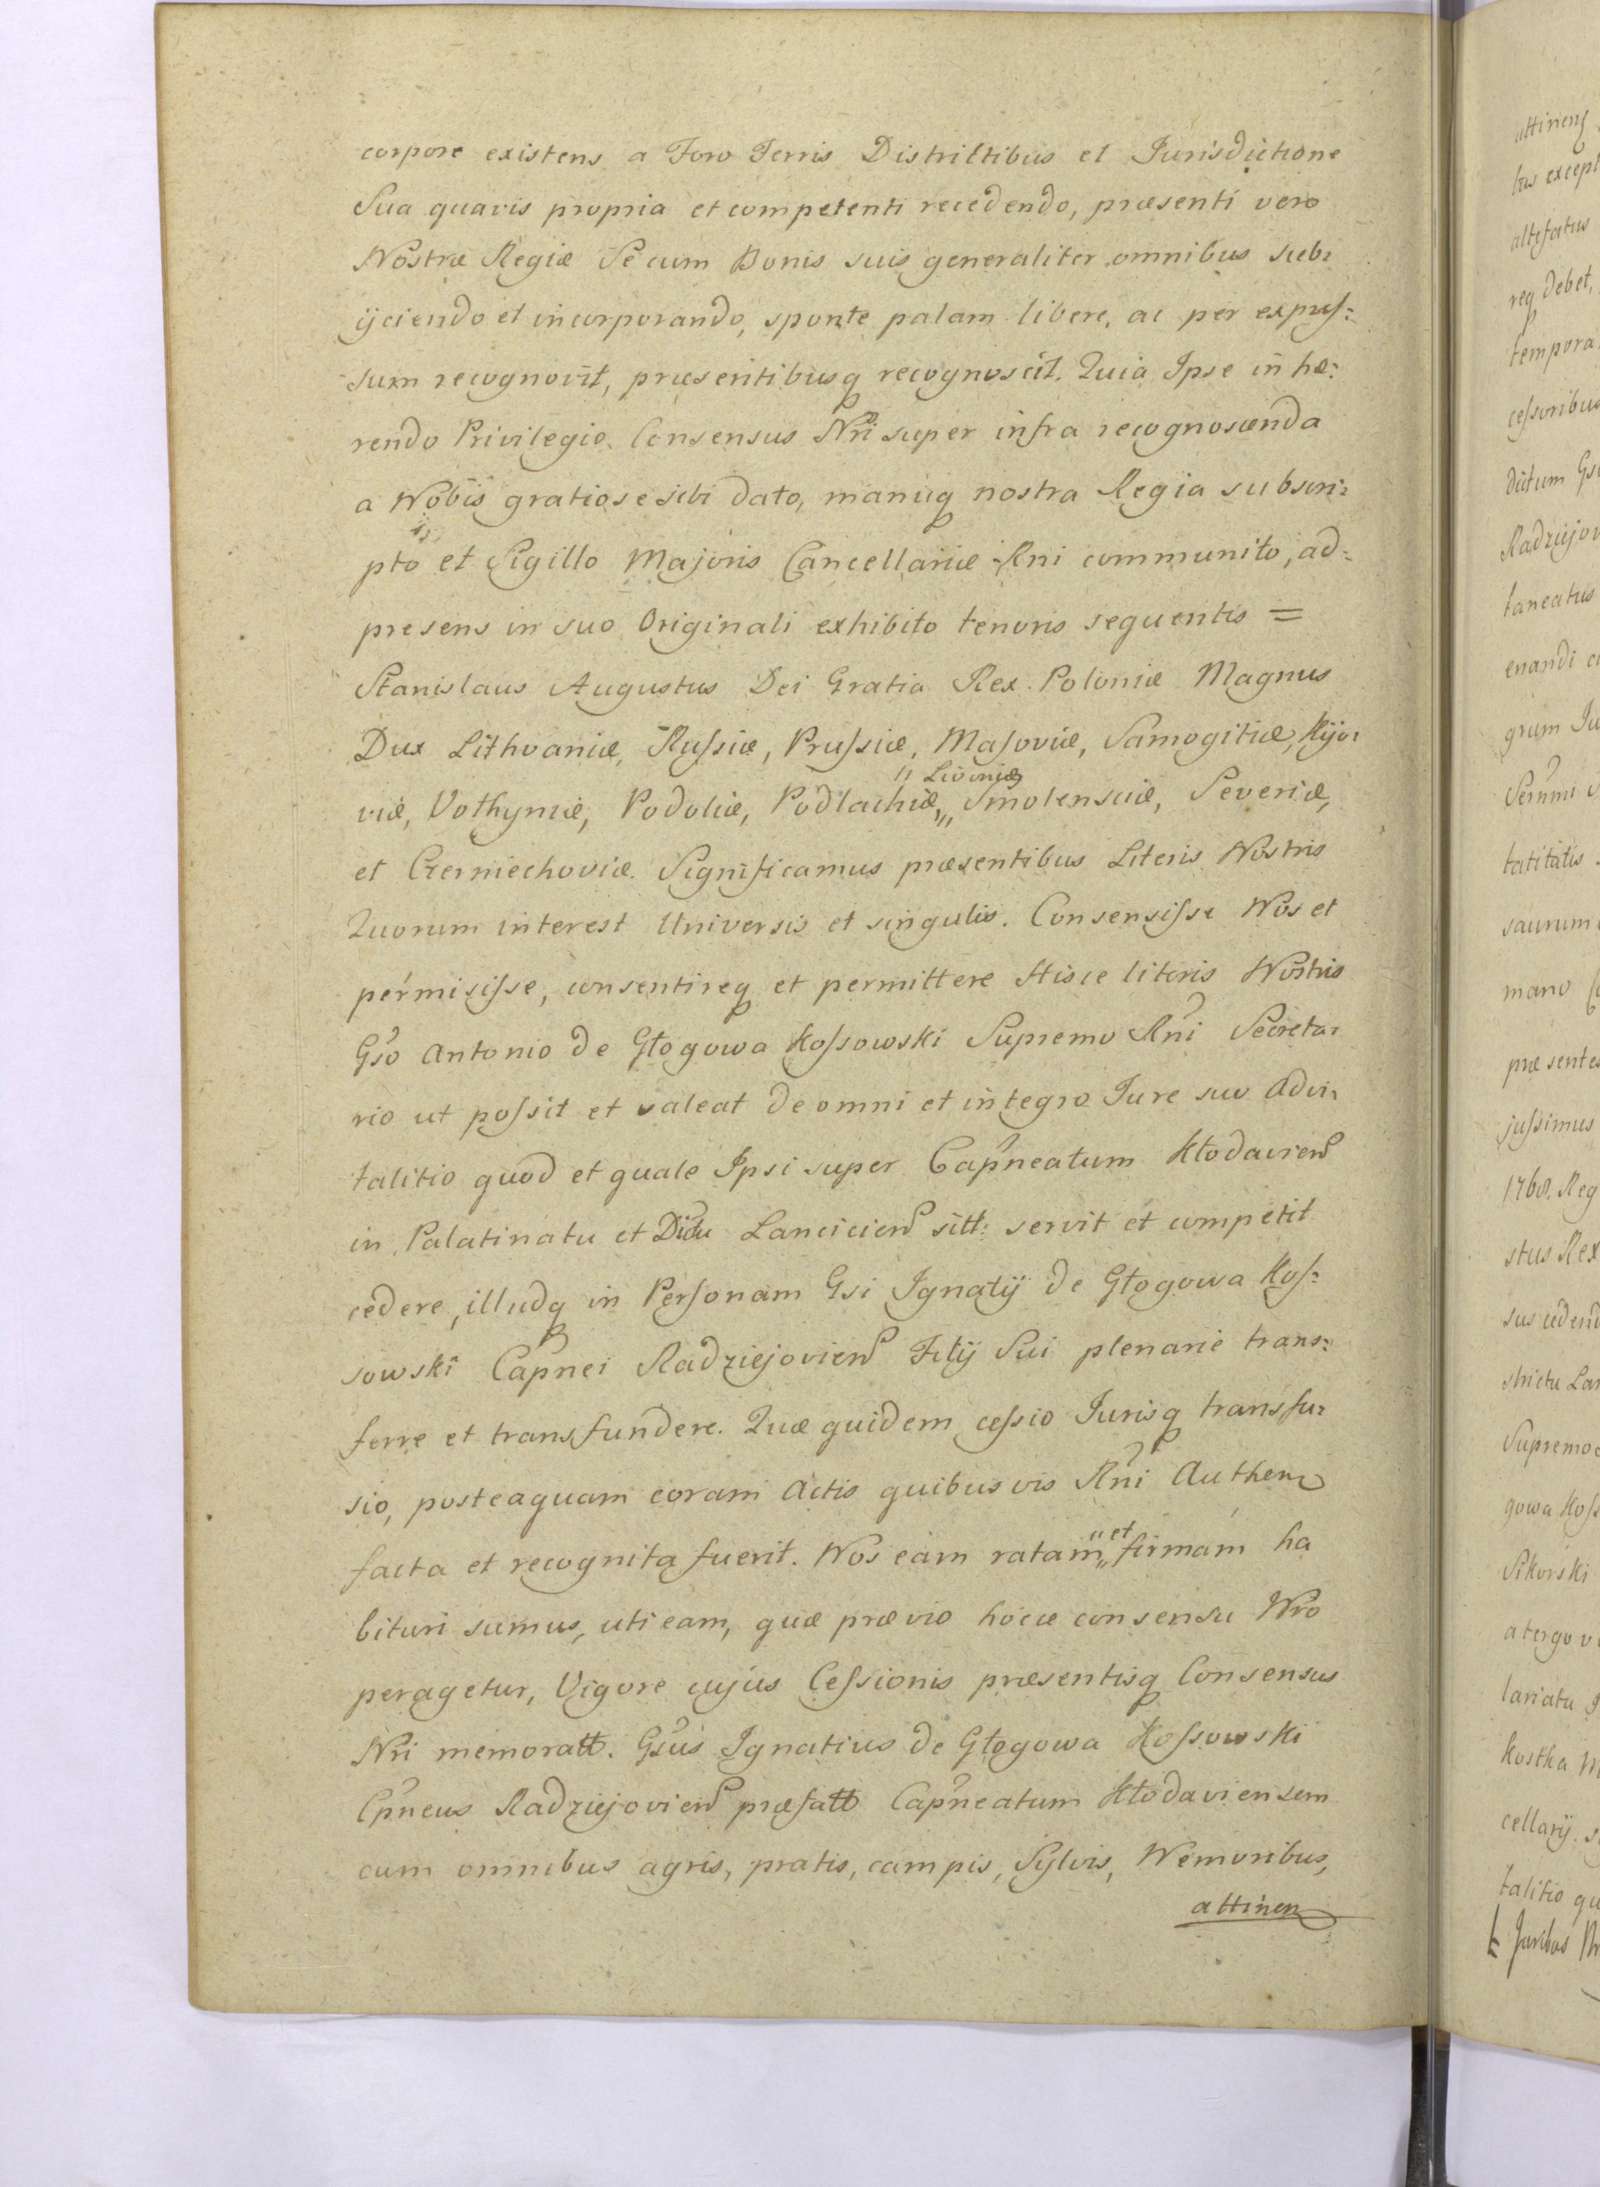 corpore existens a Foro Terris Districtibus et Jurisdictione
Sua quavis propria et competenti recedendo, præsenti vero
Nostræ Regiæ Se cum Bonis suis generaliter omnibus sub:
ijciendo et incorporando, sponte palam libere, ac per expres:
sum recognovit, præsentibusq recognoscit. Quia Ipse in hæ:
rendo Privilegio Consensus Nri super infra recognoscenda
a Nobis gratiose sibi dato, manuq nostra Regia subscri:
pto et Sigillo Majoris Cancellariæ Rni communito, ad:
presens in suo Originali exhibito tenoris sequentis =
Stanislaus Augustus Dei Gratia Rex Poloniæ Magnus
Dux Lithvaniæ, Russiæ, Prussiæ, Masoviæ, Samogitiæ, Kijo:
viæ, Volhyniæ, Podoliæ, Podlachiæ, " Livoniæ Smolensciæ, Severiæ,
et Czerniechoviæ. Significamus præsentibus Literis Nostris
Quorum interest Universis et singulis. Consensisse Nos et
permisisse, consentireq et permittere Hisce literis Nostris
Gso Antonio de Głogowa Kossowski Supremo Rni Secreta:
rio ut possit et valeat de omni et integro Jure suo advi:
talitio quod et quale Ipsi super Capneatum Kłodavien
in Palatinatu et Dictu Lancicien sitt: servit et competit
cedere, illudq in Personam Gsi Ignatij de Głogowa Kos:
sowski Capnei Radziejovien Filij Sui plenarie trans:
ferre et transfundere. Quæ quidem cessio Jurisq transfu:
sio, posteaquam coram Actis quibusvis Rni Authen
facta et recognita fuerit. Nos eam ratam " et firmam ha
bituri sumus, uti eam, quæ prævio hocce consensu Nro
peragetur, Vigore cujus Cessionis præsentisq Consensus
Nri memoratt. Gsus Ignatius de Głogowa Kossowski
Cpneus Radziejovien præfatt Capneatum Kłodaviensem
cum omnibus agris, pratis, campis, Sylvis, Nemoribus,
attinen